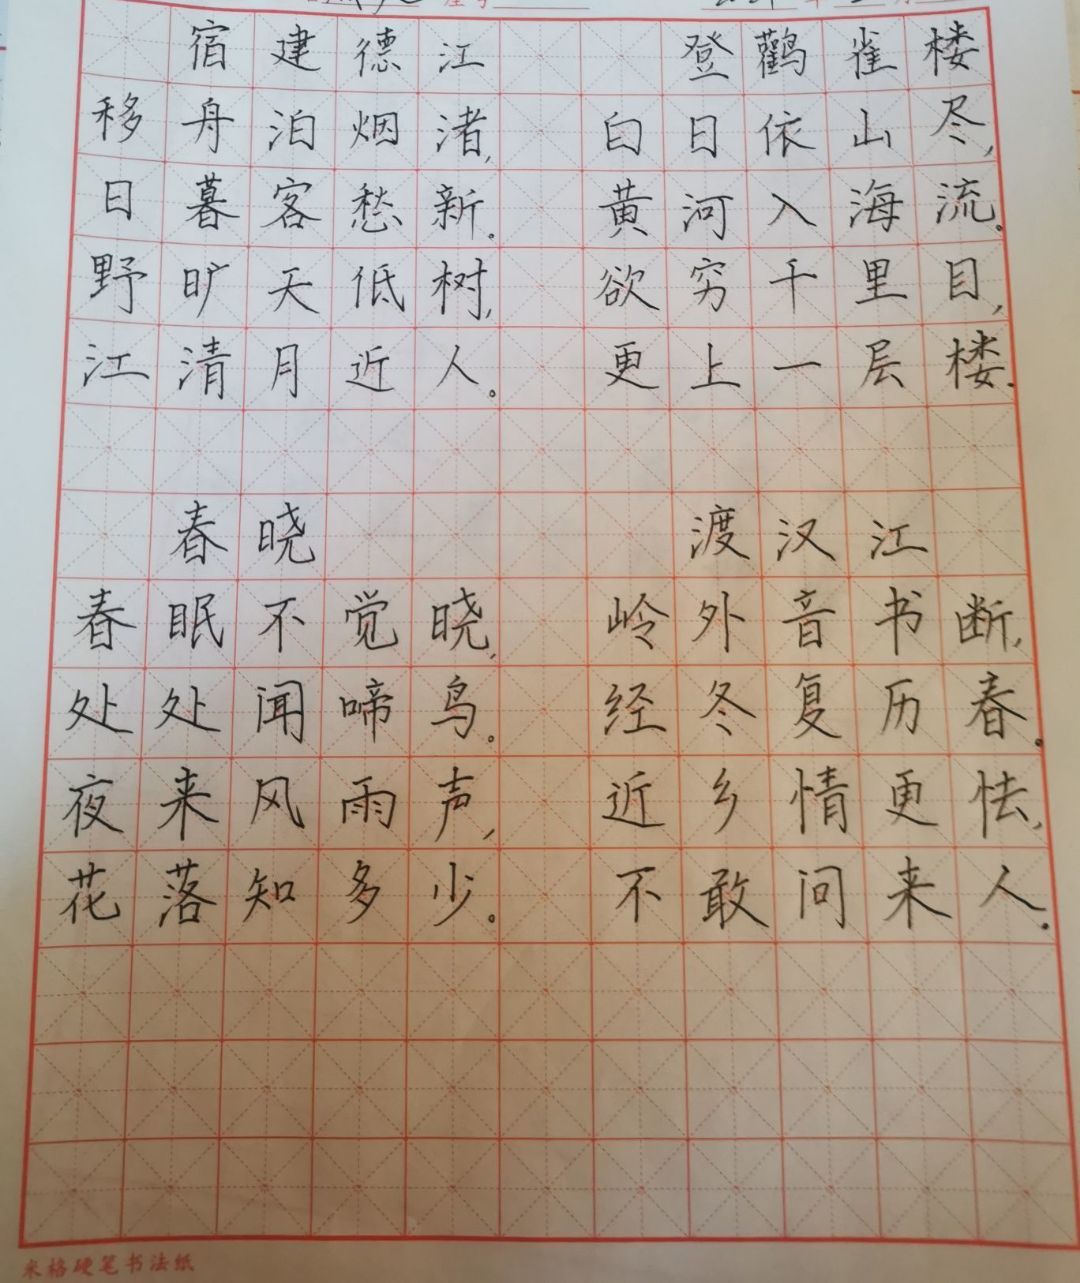 宿建德江
移舟泊烟渚,
日暮客愁新。
野旷天低树,
江清月近人。
登鹳雀楼
白日依山尽,
黄河入海流。
欲穷千里目,
更上一层楼.
春晓
春眠不觉晓,
处处闻啼鸟。
夜来风雨声,
花落知多少。
渡汉江
岭外音书断,
经冬复历春.
近乡情更怯,
不敢问来人.
米格硬笔书法纸